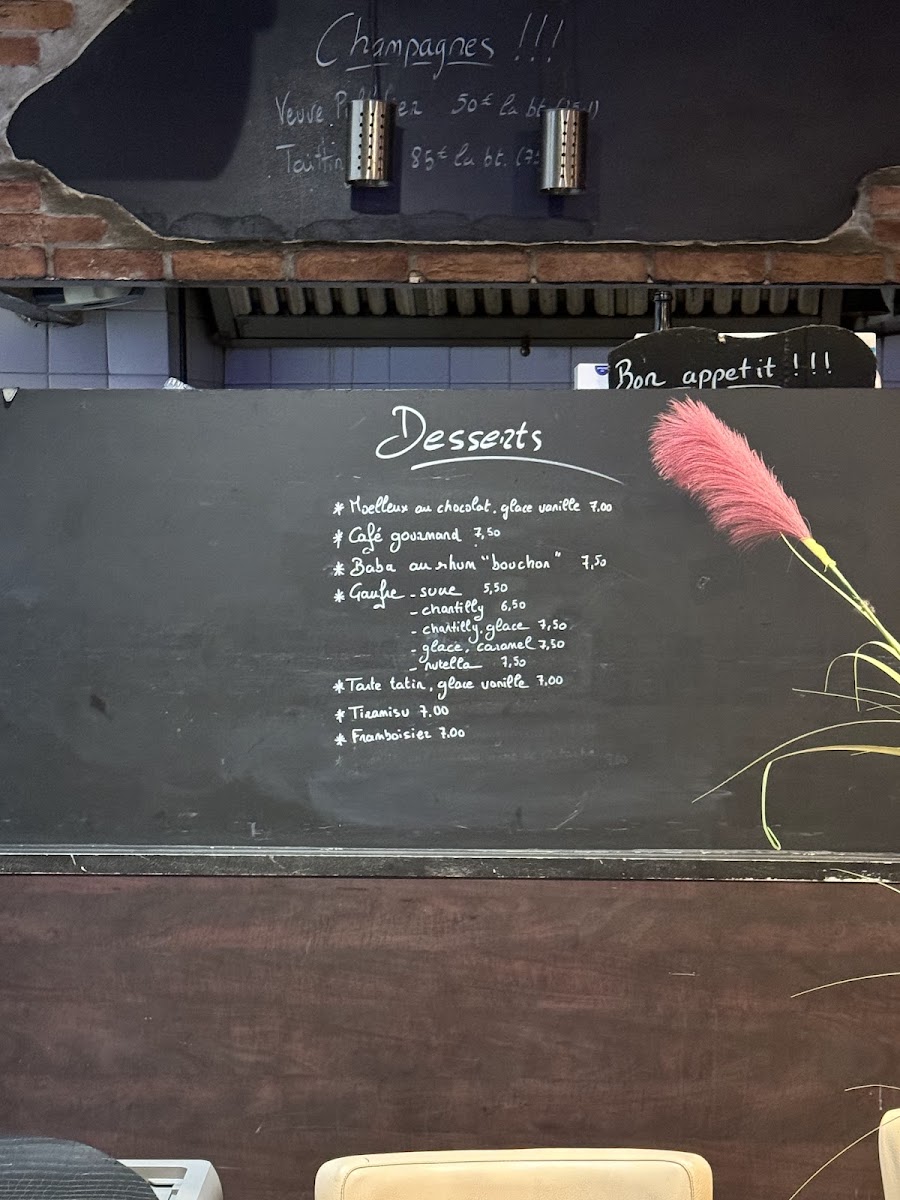 Champagnes !!!
Veuve 50€ la bt.
85€ la bt.
Bon appetit !!!
Desserts
* Moelleux au chocolat. glace vanille 7,00
* Café gourmand 7,50
* Baba au rhum "bouchon" 7,50
* Gaufre - sucre 5,50
- chantilly 6,50
- chantilly. glace 7,50
- glace, caramel 7,50
- nutella 7,50
* Tarte tatin, glace vanille 7,00
* Tiramisu 7.00
* Framboisier 7.00